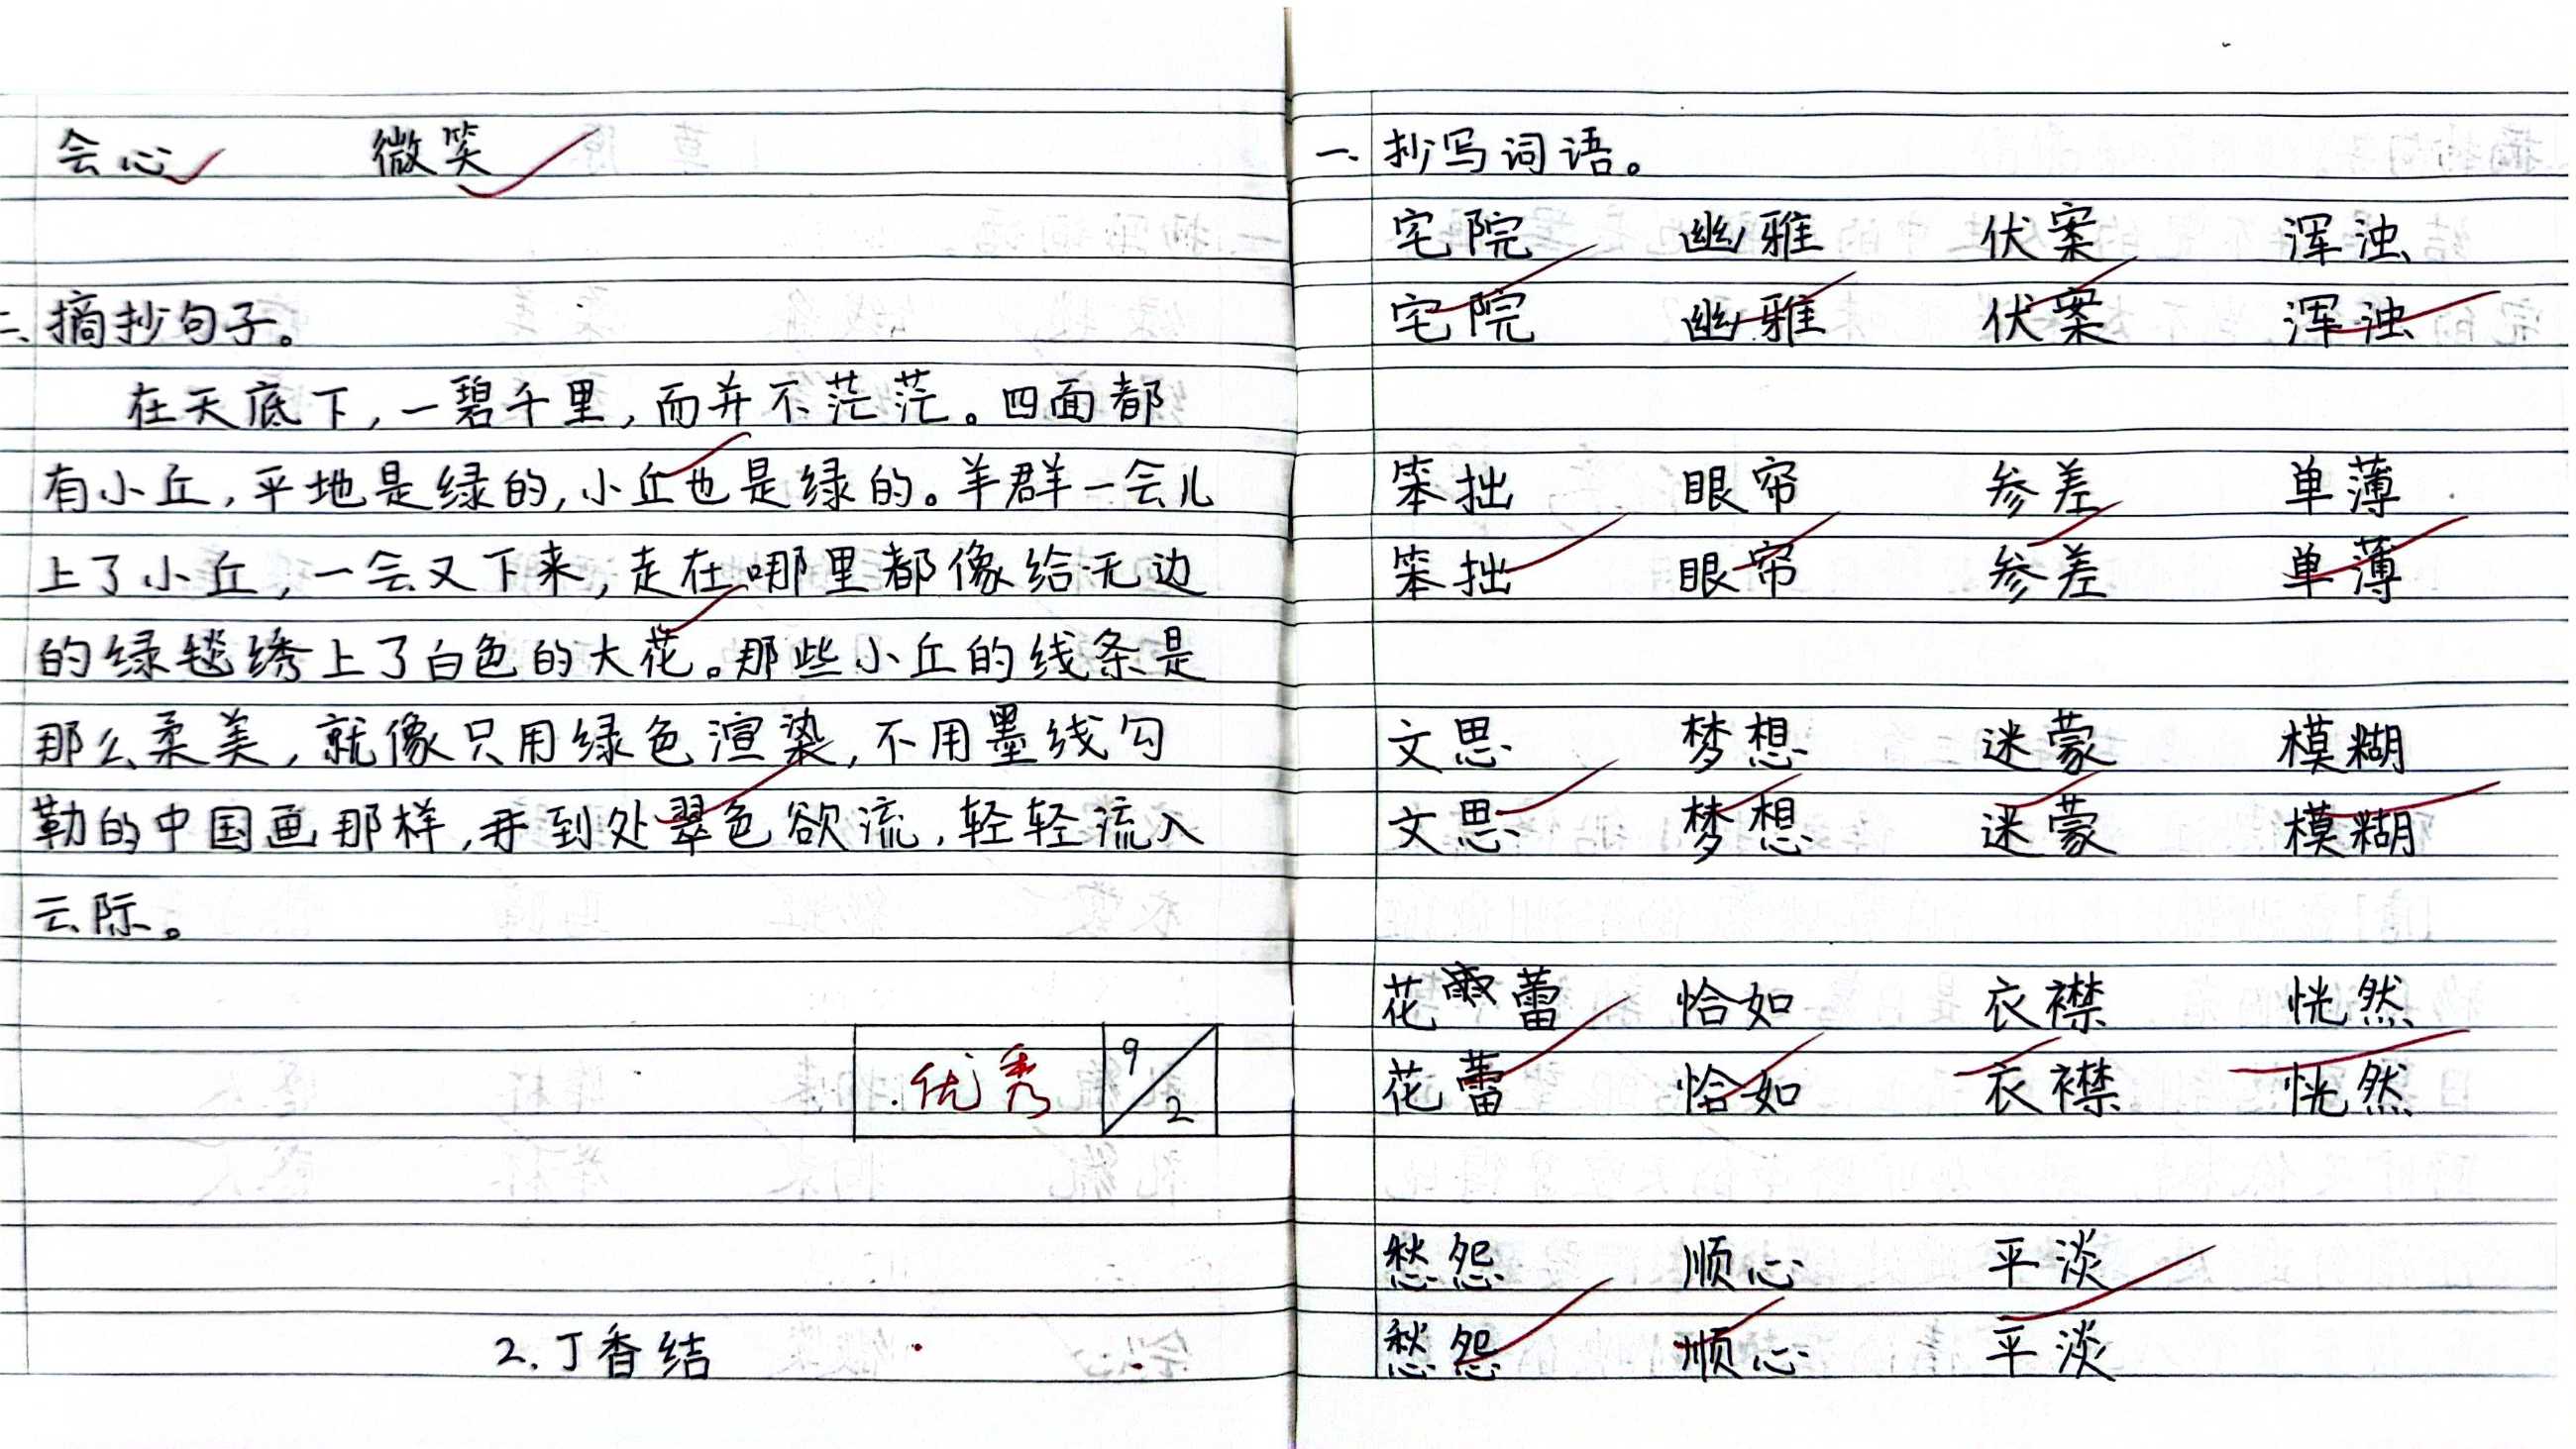 会心 微笑
二、摘抄句子。
在天底下,一碧千里,而并不茫茫。四面都
有小丘,平地是绿的,小丘也是绿的。羊群一会儿
上了小丘,一会又下来,走在哪里都像给无边
的绿毯绣上了白色的大花。那些小丘的线条是
那么柔美,就像只用绿色渲染,不用墨线勾
勒的中国画那样,到处翠色欲流,轻轻流入
云际。
优秀 9/2
2.丁香结
一、抄写词语。
宅院 幽雅 伏案 浑浊
宅院 幽雅 伏案 浑浊
笨拙 眼帘 参差 单薄
笨拙 眼帘 参差 单薄
文思 梦想 迷蒙 模糊
文思 梦想 迷蒙 模糊
花蕾 恰如 衣襟 恍然
花蕾 恰如 衣襟 恍然
愁怨 顺心 平淡
愁怨 顺心 平淡